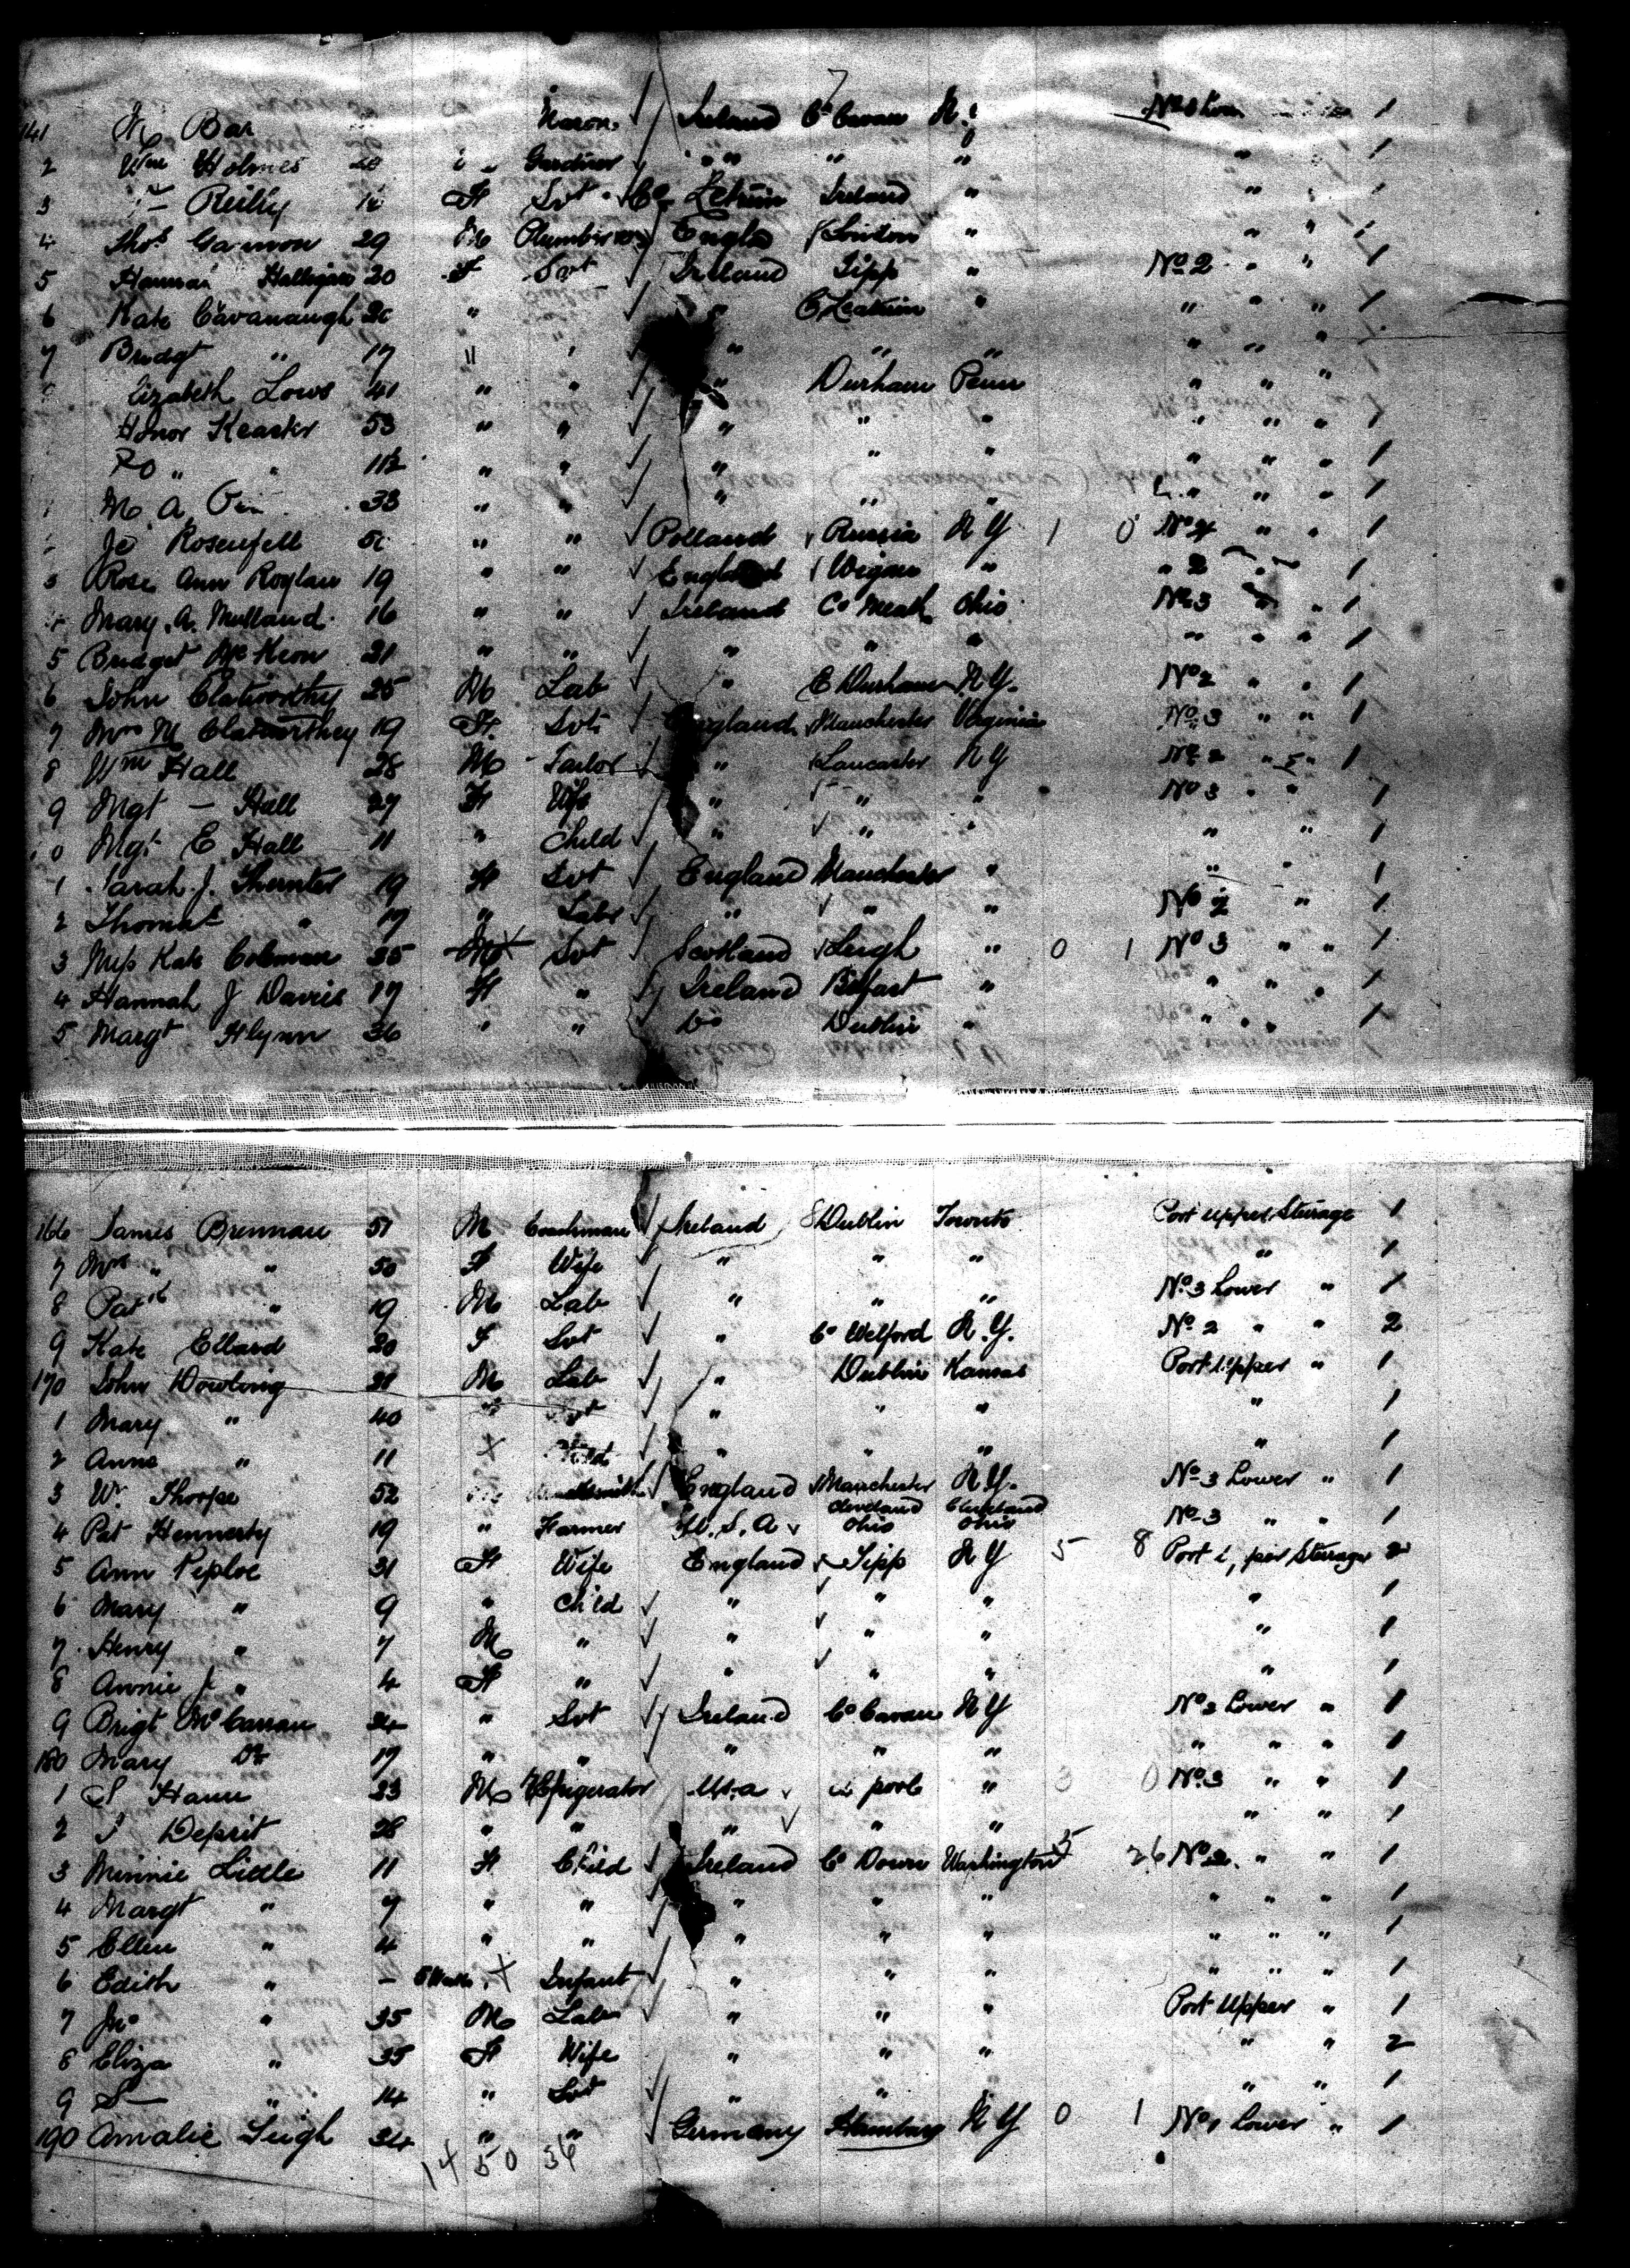 141 M Bar Mason Ireland Co Cavan N. No 3 Low 1
2 Wm Holmes " Gardiner " " " " " 1
3 Reilly 16 F Svt Co Letrim Ireland " " " 1
4 Thos Gannon 29 M Plumbir Engla London " " " 1
5 Hannah Halligan 20 F Svt Ireland Tipp " No 2 " " 1
6 Kate Cavanaugh 20 " " C Leatrim " " " " 1
7 Bridgt " 17 " " " " " " " " 1
Elizabeth Lows 41 " " " Durham Penn " " " 1
Honor Kearkr 53 " " " " " " " " 1
" " 11 " " " " " " " " 1
M A 33 " " " " " " " 1
Jo Rosenfell " " Polland Russia N Y 1 0 No 4 " " 1
3 Rose Ann Roylan 19 " " England Wigan " " 2 " 1
4 Mary A. Mulland 16 " " Ireland Co Meath Ohio No 3 " " 1
5 Bridget McKeon 21 " " " " " " " " 1
6 John Clatworthy 25 M Lab " C Durham N.Y. No 2 " " 1
7 Mrs M Clatworthey 19 F Svt England Manchester Virginia No 3 " " 1
8 Wm Hall 28 M Tailor " Lancaster N Y No 2 " " 1
9 Mgt — Hall 27 F Wife " " " No 3 " " 1
0 Mgt E Hall 11 " Child " " " " " 1
1 Sarah J. Thernter 19 F Svt England Manchester " " " 1
2 Thomas " 17 " Labr " " " No 2 " 1
3 Miss Kate Coleman 35 M Svt Scotland Leigh " 0 1 No 3 " " 1
4 Hannah J Davies 17 F " Ireland Belfast " " " " 1
5 Margt Flynn 36 " " Do Dublin " " " " 1
166 James Brennan 51 M Coachman Ireland Dublin Toronto Port upper Sturage 1
7 Mrs " " 50 F Wife " " " " 1
8 Patk " 19 M Lab " " " No 3 Lower " 1
9 Kate Ellard 20 F Svt " Co Welford N.Y. No 2 " " 2
170 John Dowling 31 M Lab " Dublin Kansas Port Upper " 1
1 Mary " 40 " Svt " " " " 1
2 Anne " 11 X Child " " " " 1
3 W. Thorpe 52 England Manchester N.Y. No 3 Lower " 1
4 Pat Hennerty 19 " Farmer U.S.A Cleveland Ohio Cleveland Ohio No 3 " " 1
5 Ann Peploe 31 F Wife England Tipp N Y 5 8 Port Upper Sturage 2
6 Mary " 9 " Child " " " " 1
7 Henry " 7 M " " " " " 1
8 Annie J " 4 F " " " " " 1
9 Brigt McCarran 24 " Svt Ireland Co Cavan N Y No 2 Lower " 1
180 Mary Do 17 " " " " " " " " 1
1 S Hann 23 M Refrigerator U.S.a pool " 3 0 No 3 " " 1
2 J Deprit 28 " " " " " " " 1
3 Minnie Little 11 F Child Ireland Co Down Washington 5 26 No 2. " " 1
4 Margt " 7 " " " " " " " " 1
5 Ellen " 4 " " " " " " " " 1
6 Edith " — X Infant " " " " " " 1
7 Jno " 35 M Lab " " " Port Upper " 1
8 Eliza " 35 F Wife " " " " " 2
9 S— " 14 " Svt " " " " 1
190 Amalie Leigh 34 " " Germany Hamburg N Y 0 1 No 1 Lower " 1
14 50 36